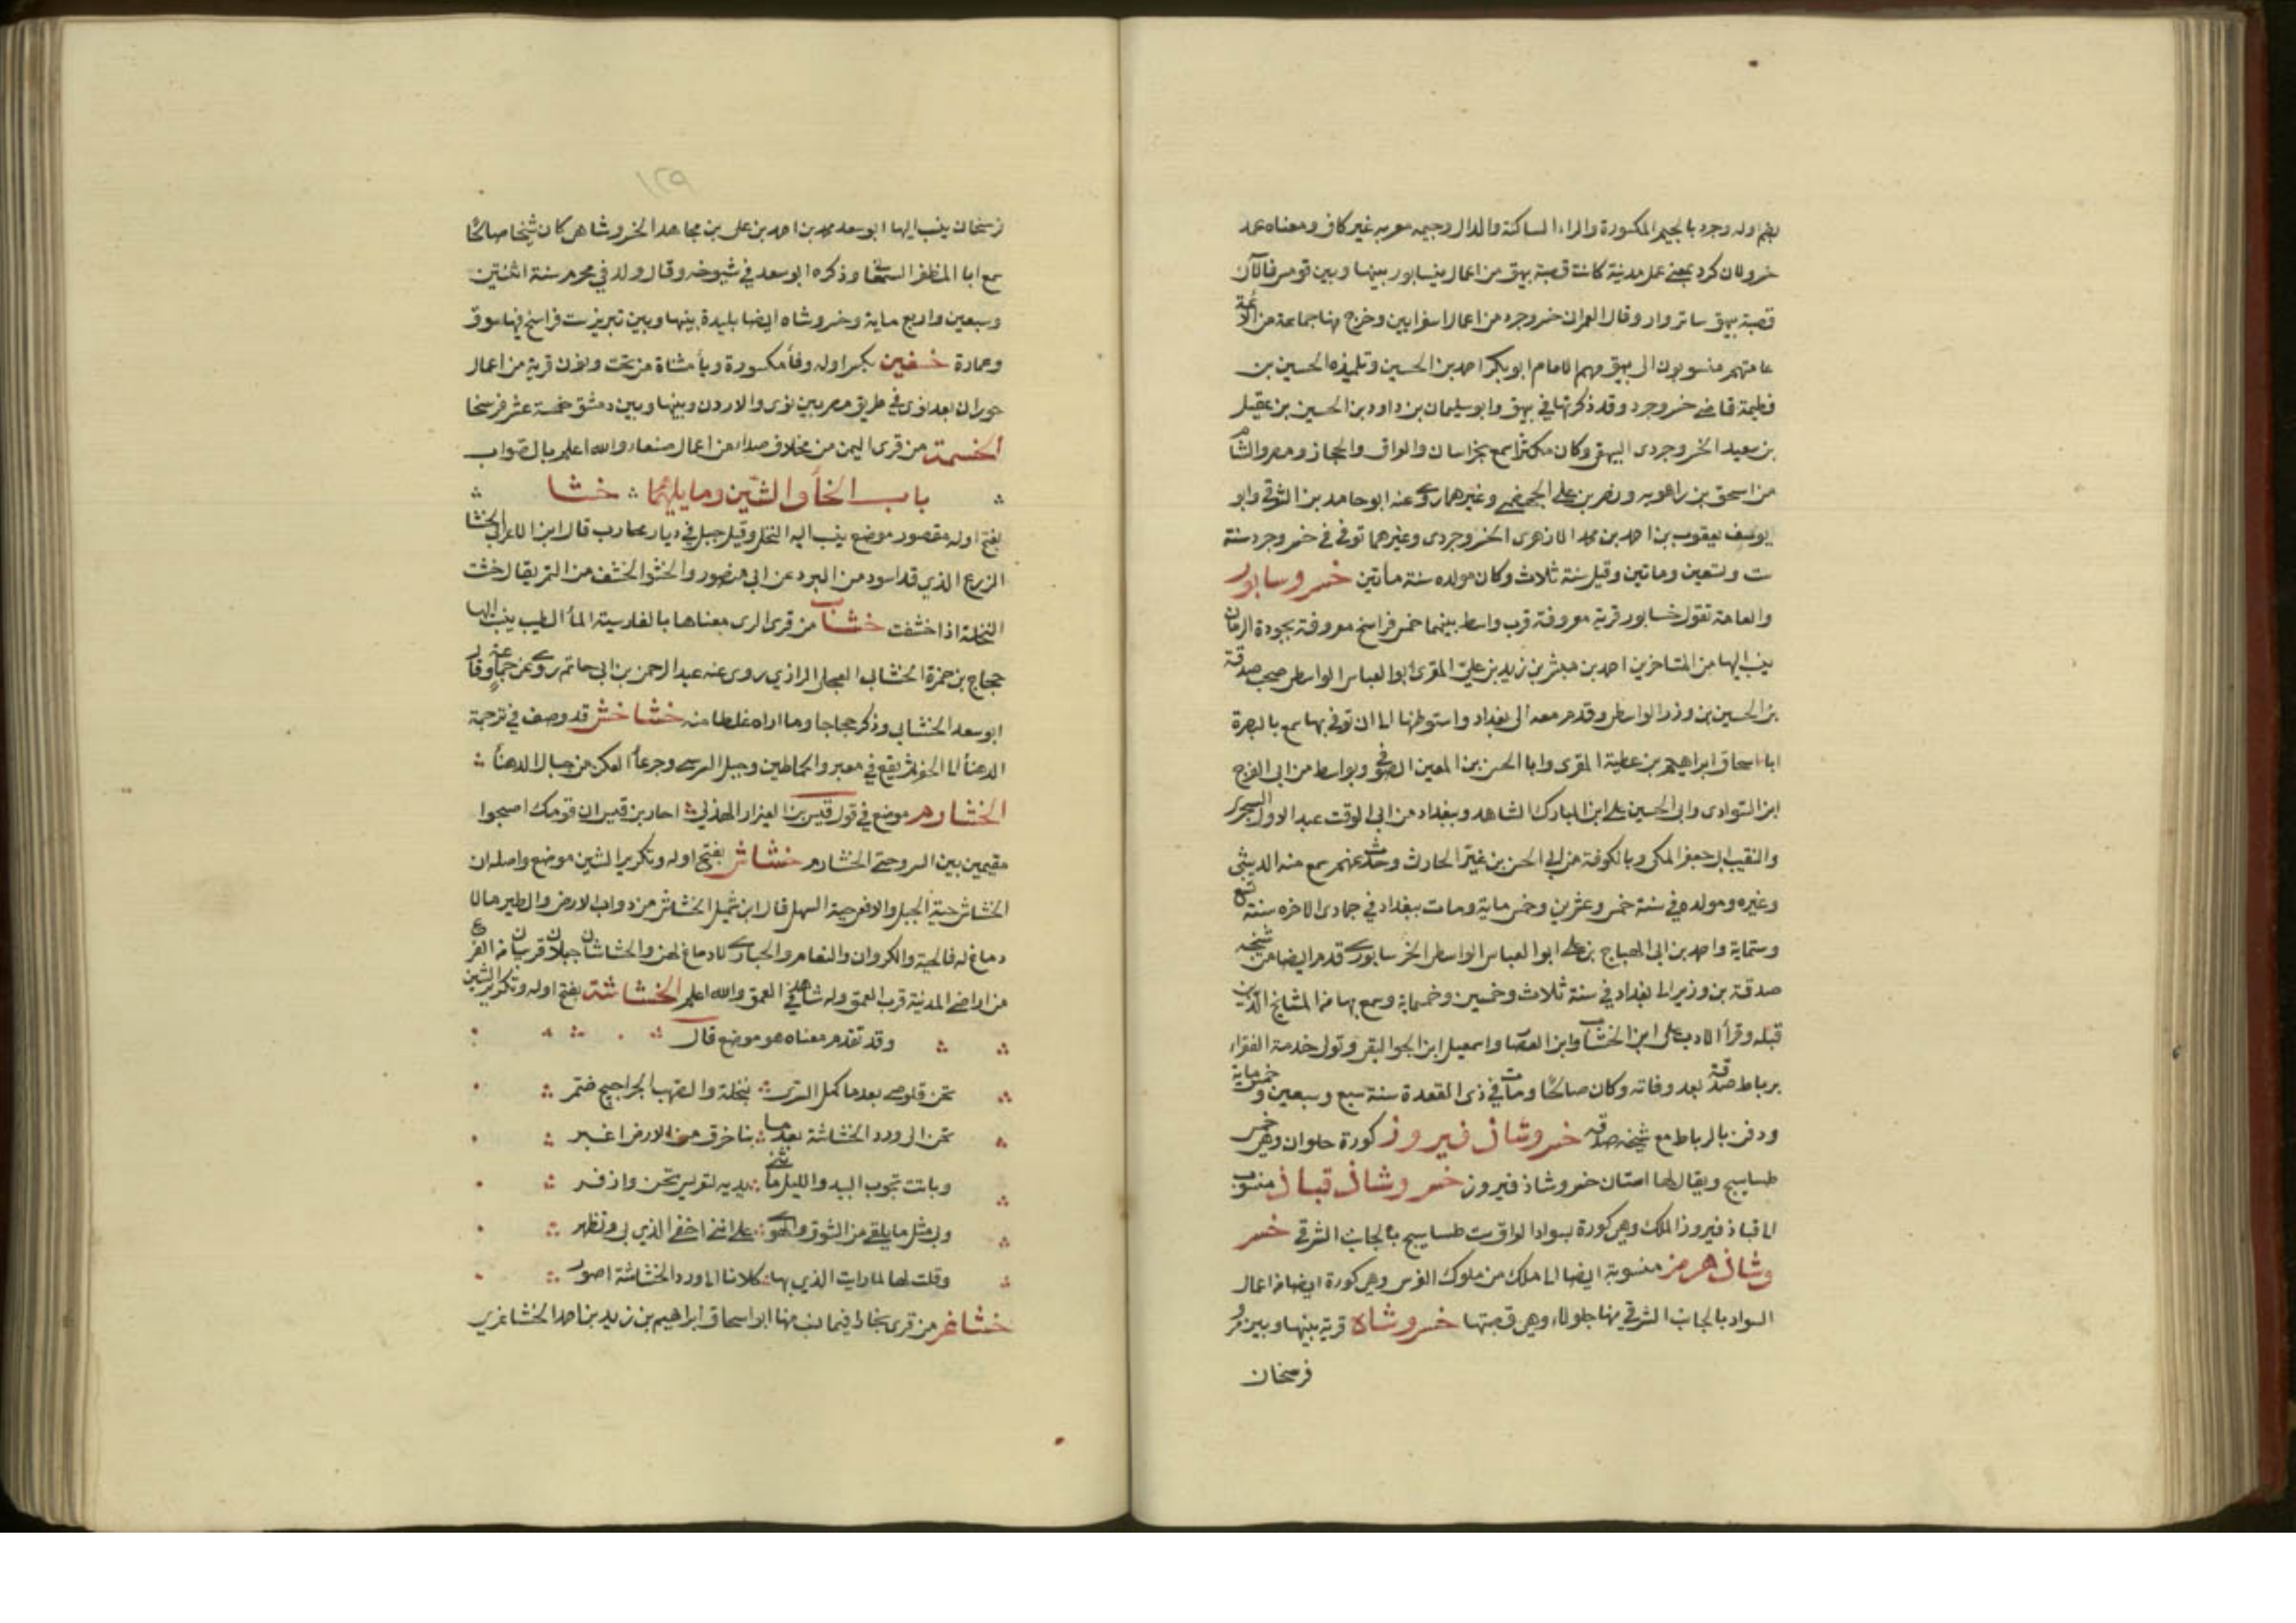 بضم اوله وجرد بالجيم المكسورة والراء الساكنة والدال وجيمه معربه غير كاف ومعناه عمل
خرو لان كرد بمعنى عمل مدينة كانت قصبة بيهق من اعمال نيسابور بينها وبين قومس فالآن
قصبة بيهق سابزوار وقال العمران خسروجرد من اعمال اسفرايين وخرج منها جماعة من الائمة
عامتهم منسوبون الى بيهق منهم الامام ابو بكر احمد بن الحسين وتلميذه الحسين بن
فطيمة قاضى خسروجرد وقد ذكرتها في بيهق وابو سليمان بن داود بن الحسين بن عقيل
بن سعيد الخسروجردى البيهقى وكان مكثرا سمع بخراسان والعراق والحجاز ومصر والشام
من اسحق بن راهويه ونصر بن على الجهضمى وغيرهما روى عنه ابو حامد بن الشرقى وابو
يوسف يعقوب بن احمد بن محمد الازهرى الخسروجردى وغيرهما توفى في خسروجرد سنة
ست وتسعين وماتين وقيل سنة ثلاث وكان مولده سنة مأتين خسروسابور
والعامة تقول خسابور قرية معروفة قرب واسط بينهما خمس فراسخ معروفة بجودة الرمان
ينسب اليها من المتاخرين احمد بن مبشر بن زيد بن على المقرى ابو العباس الواسطى صحب صدقة
بن الحسين بن وزير الواسطى وقدم معه الى بغداد واستوطنها الى ان توفى بها سمع بالبصرة
ابا اسحاق ابراهيم بن عطية المقرى وابا الحسن بن المعين الصوفى وبواسط من ابى الفرج
ابن السوادى وابى الحسين على ابن المبارك الشاهد وببغداد من ابى الوقت عبد الاول السجزى
والنقيب ابى جعفر المكى وبالكوفة من ابى الحسن بن غبرة الحارث وحدث عنهم سمع منه الدبيثى
وغيره ومولده في سنة خمس وعشرين وخمس ماية ومات ببغداد في جمادى الاخره سنة تسع
وستماية واحمد بن ابى الهياج بن على ابو العباس الواسطى الخرسابورى قدم ايضا من شيخه
صدقة بن وزير الى بغداد في سنة ثلاث وخمسين وخمسماية وسمع بها من المشايخ الذين
قبله وقرأ الادب على ابن الخشاب وابن العصار واسمعيل ابن الجواليقى وتولى خدمة الفقراء
برباط صدقة بعد وفاته وكان صالحا ومات في ذى القعدة سنة سبع وسبعين وخمس ماية
ودفن بالرباط مع شيخه صدقه خسروشاذ فيروز كورة حلوان وهى خمس
طساسيج ويقال لها استان خسروشاذ فيروز خسروشاذ قباذ منسوب
الى قباذ فيروز الملك وهى كورة بسواد العراق ست طساسيج بالجانب الشرقى خسر
وشاذ هرمز منسوبة ايضا الى ملك من ملوك الفرس وهى كورة ايضا من اعمال
السواد بالجانب الشرقى منها جلولاء وهى قصبتها خسروشاه قرية بينها وبين مرو
فرسخان
١٢٩
فرسخان ينسب اليها ابو سعد محمد بن احمد بن على بن مجاهد الخسروشاهى كان شيخا صالحا
سمع ابا المظفر السمعانى وذكره ابو سعد في شيوخه وقال ولد في محرم سنة اثنتين
وسبعين واربع ماية وخسروشاه ايضا بليدة بينها وبين تبريز ست فراسخ فيها سوق
وعمارة خسفين بكسر اوله وفأ مكسورة ويأ مثناة من تحت ونون قرية من اعمال
حوران بعد نوى في طريق مصر بين نوى والاردن وبينها وبين دمشق خمسة عشر فرسخا
الخسمة من قرى اليمن من مخلاف صداء من اعمال صنعاء والله اعلم بالصواب
باب الخأ والشين وما يليهما خشا
بفتح اوله مقصور موضع ينسب اليه النخل وقيل جبل في ديار محارب قال ابن الاعرابى الخشا
الزرع الذي قد اسود من البرد عن ابى منصور والخشو الخشف من التمر يقال خشت
النخلة اذا خشفت خشاب من قرى الرى معناها بالفارسية المأ الطيب ينسب اليها
حجاج بن حمزة الخشابى العجلى الرازي روى عنه عبد الرحمن بن ابى حاتم روى عن جماعة وقال
ابو سعد الخشابى وذكر حجاجا وما اراه غلطا منه خشاخش قد وصف في ترجمة
الدهنأ لما الحفر ثم يقع في معبر والحماطين وجبل السرسر وجرعأ العكن من جبال الدهنأ
الخشارم موضع في قول قيس بن العيزار الهذلي احار بن قيس ان قومك اصبحوا
مقيمين بين السرو حتى الخشارم خشاش بفتح اوله وتكرير الشين موضع واصله ان
الخشاش حية الجبل والافعى حية السهل قال ابن شميل الخشاش من دواب الارض والطير ما لا
دماغ له فالحية والكروان والنعام والحبارى لا دماغ لهن والخشاشان جبلان قريبان من الفرع
من اراضى المدينة قرب العمق وله شاهد في العمق والله اعلم الخشاشة بفتح اوله وتكرير الشين
وقد تقدم معناه هو موضع قال
تحن قلوصى بعد ما كمل السرى بنخلة والصهب الحراجيج ضمر
تحن الى ورد الخشاشة بعد ما بنا خرق من الارض اغبر
وباتت تجوب البيد والليل ما ثنى يديه لتعريس تحن وازفر
وبى مثل ما يلقى من الشوق والهوى على اننى اخفى الذي بى وتظهر
وقلت لها لما رايت الذي بها كلانا الى ورد الخشاشة اصور
خشاغر من قرى بخارا فيما نسب منها ابو اسحاق ابراهيم بن زيد بن احمد الخشاغرى